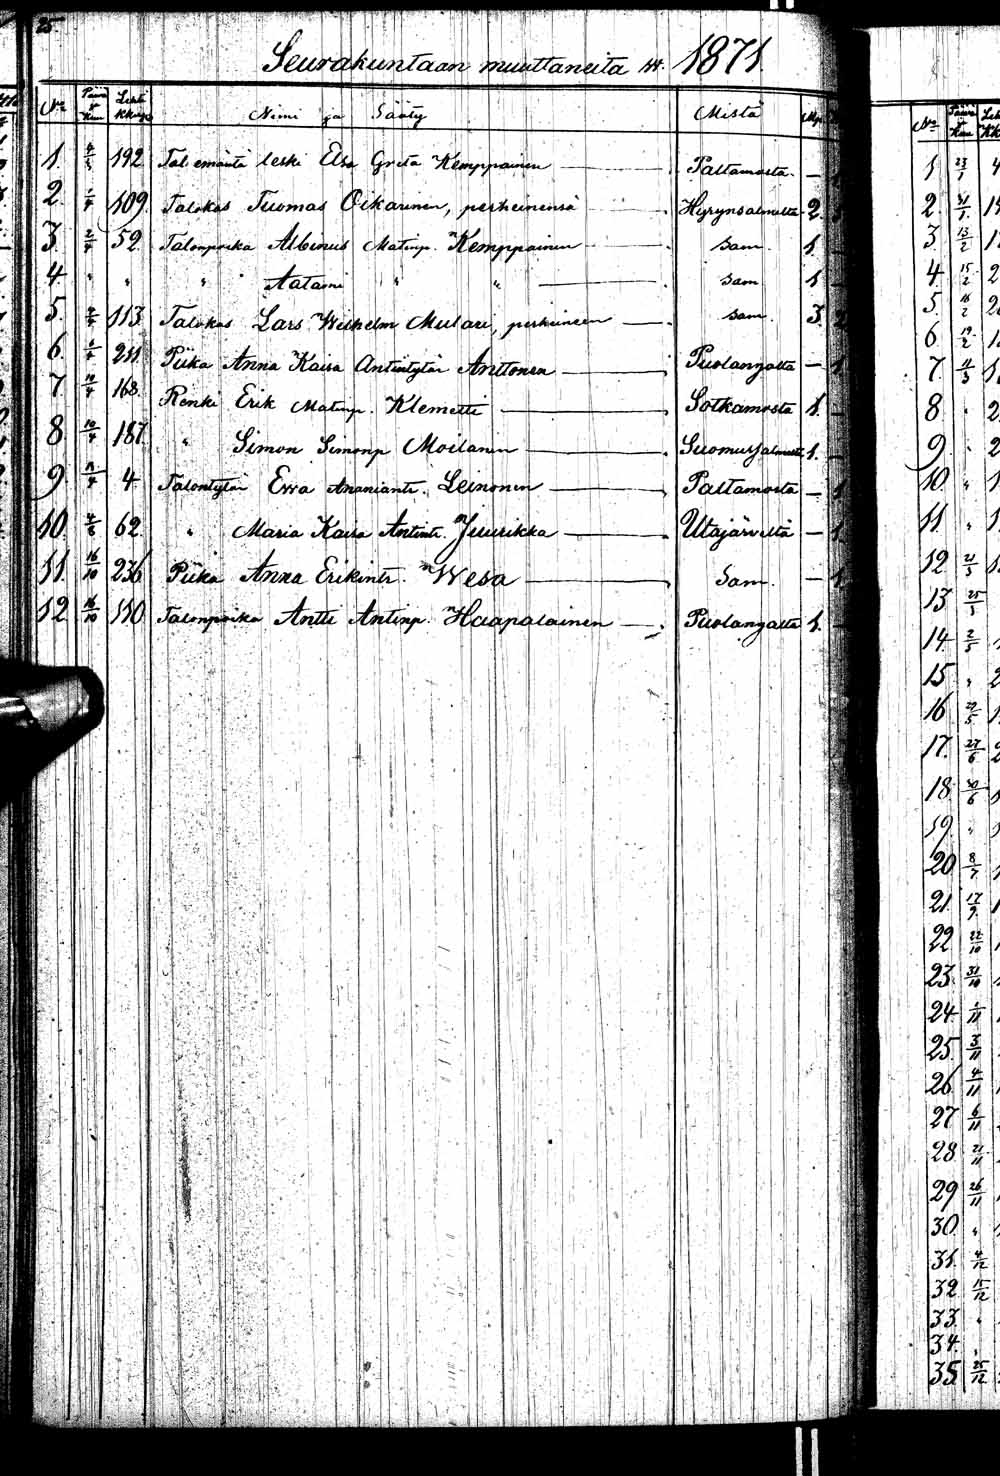 25.
Seurakuntaan muuttaneita w. 1871.
No Päiwä & Kuu Lehti KKirja Nimi ja Sääty Mistä Mp.
1. 192 Tal. emäntä leski Elsa Greta Kemppainen Paltamosta. — 1
2. 109 Talokas Tuomas Oikarinen, perheinensä Hyrynsalmelta 2.
3. 2/4 52 Talonpoika Albinus Matinp. Kemppainen sam. 1. —
4. " " " Aatami " " sam 1 —
5. 113. Talokas Lars Wilhelm Mulari, perheineen sam. 3. 2
6. 211 Piika Anna Kaisa Antintytär Anttonen Puolangalta — 1
7. 10/4 168. Renki Erik Matinp. Klemetti Sotkamosta 1. —
8. 10/4 187. " Simon Simonp Moilanen Suomusjalmelta 1. —
9. 4 Talontytär Ewa Ananiantr. Leinonen Paltamosta — 1
10. 4/6 62. " Maria Kaisa Antintr. Juurikka Utajärveltä — 1.
11. 16/10 236 Piika Anna Erikintr. Wesa Sam. — 1.
12. 16/10 110 Talonpoika Antti Antinp. Haapalainen Puolangalta 1. —
No Päiwä & Kuu
1 23/1
2. 31/1
3. 13/2
4. 15/2
5. 16/2
6. 19/2
7. 11/3
8. "
9. "
10. "
11. "
12 21/3
13 25/3
14. 2/5
15. "
16 29/5
17. 27/6
18. 30/6
19. "
20. 8/7
21. 17/9
22 22/10
23. 31/10
24. 1/11
25. 3/11
26. 4/11
27. 6/11
28. 21/11
29 26/11
30. "
31. 4/12
32. 15/12
33. "
34. "
35. 25/12